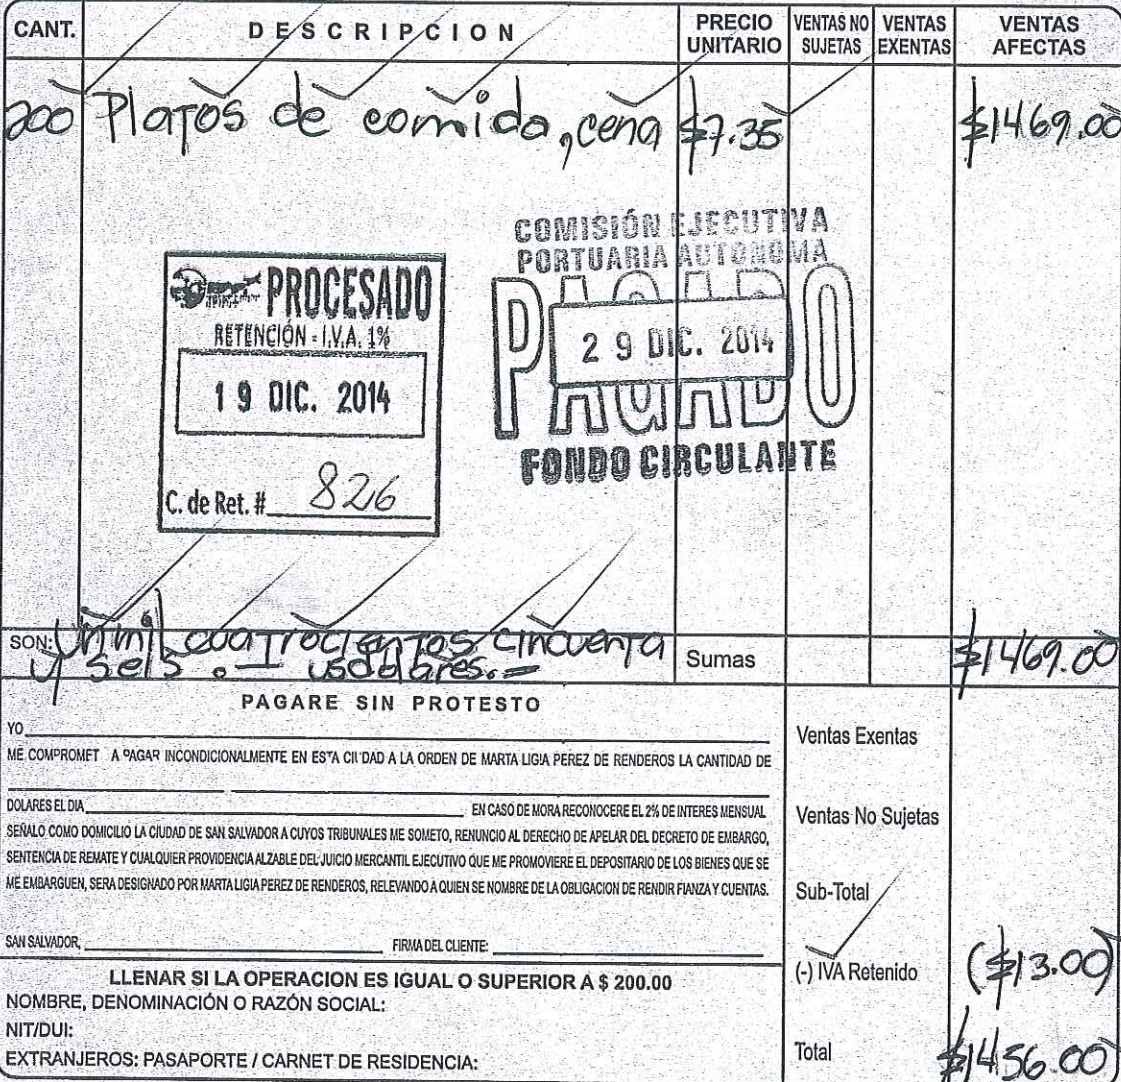 CANT. DESCRIPCION PRECIO UNITARIO VENTAS NO SUJETAS VENTAS EXENTAS VENTAS AFECTAS
200 Platos de comida, cena $7.35 $1469.00
COMISIÓN EJECUTIVA
PORTUARIA AUTONOMA
PAGADO
29 DIC. 2014
FONDO CIRCULANTE
PROCESADO
RETENCIÓN - I.V.A. 1%
19 DIC. 2014
C. de Ret. # 826
SON: Un mil cuatrocientos cincuenta
y seis . — usdolares.=
Sumas $1469.00
PAGARE SIN PROTESTO
YO
ME COMPROMET A PAGAR INCONDICIONALMENTE EN ESTA CIUDAD A LA ORDEN DE MARTA LIGIA PEREZ DE RENDEROS LA CANTIDAD DE
DOLARES EL DIA EN CASO DE MORA RECONOCERE EL 2% DE INTERES MENSUAL
SEÑALO COMO DOMICILIO LA CIUDAD DE SAN SALVADOR A CUYOS TRIBUNALES ME SOMETO, RENUNCIO AL DERECHO DE APELAR DEL DECRETO DE EMBARGO,
SENTENCIA DE REMATE Y CUALQUIER PROVIDENCIA ALZABLE DEL JUICIO MERCANTIL EJECUTIVO QUE ME PROMOVIERE EL DEPOSITARIO DE LOS BIENES QUE SE
ME EMBARGUEN, SERA DESIGNADO POR MARTA LIGIA PEREZ DE RENDEROS, RELEVANDO A QUIEN SE NOMBRE DE LA OBLIGACION DE RENDIR FIANZA Y CUENTAS.
SAN SALVADOR, FIRMA DEL CLIENTE:
LLENAR SI LA OPERACION ES IGUAL O SUPERIOR A $ 200.00
NOMBRE, DENOMINACIÓN O RAZÓN SOCIAL:
NIT/DUI:
EXTRANJEROS: PASAPORTE / CARNET DE RESIDENCIA:
Ventas Exentas
Ventas No Sujetas
Sub-Total
(-) IVA Retenido ($13.00)
Total $1456.00